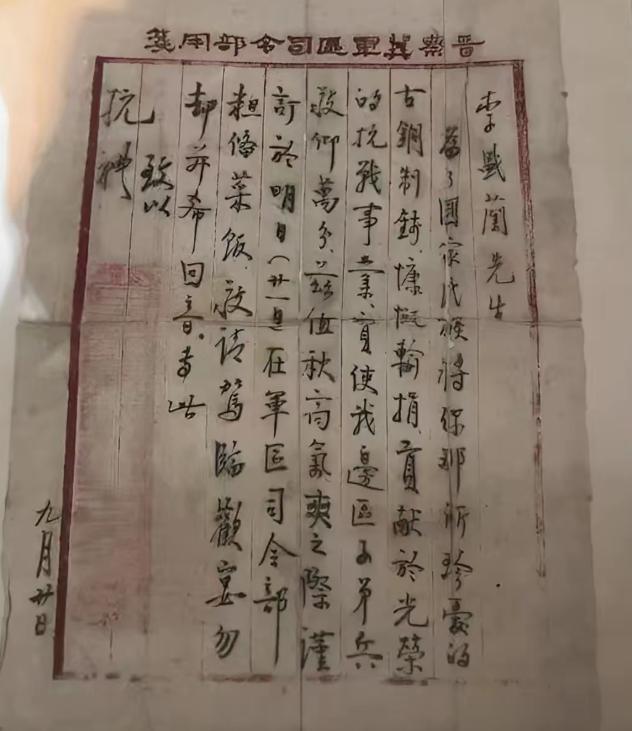 晉察冀軍區司令部用箋
李蘭先生
為了國家民族將你那所珍愛的
古銅制錢、慷慨輸捐、貢献於光榮
的抗戰事業、實使我邊區子弟兵
敬仰萬分、茲值秋高氣爽之際謹
訂於明日(廿一日)在軍區司令部
粗備菜飯、敬請駕臨歡宴勿
却并希回音、專此
致以
抗禮
九月廿日